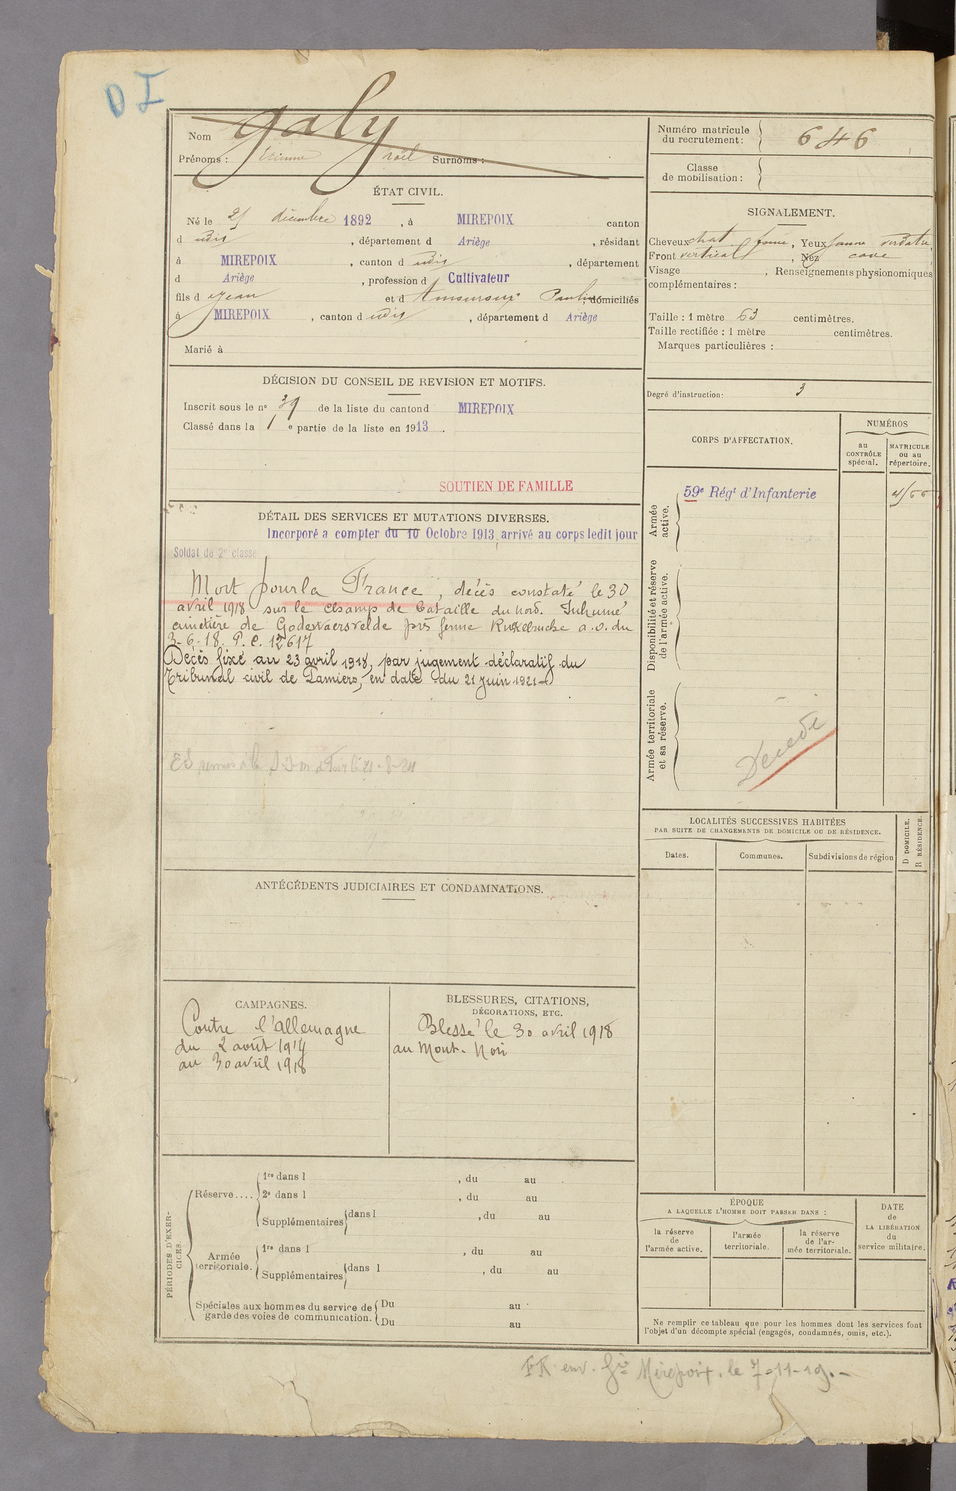 D I
Nom Galy
Prénoms : Etienne Noël Surnoms :
ÉTAT CIVIL.
Né le 25 décembre 1892, à MIREPOIX canton
d udit, département d Ariège, résidant
à MIREPOIX, canton d udit, département
d Ariège, profession d Cultivateur
fils d Jean et d Pauline domiciliés
à MIREPOIX, canton d udit, département d Ariège
Marié à
DÉCISION DU CONSEIL DE REVISION ET MOTIFS.
Inscrit sous le n° 39 de la liste du canton d MIREPOIX
Classé dans la 1 e partie de la liste en 1913.
SOUTIEN DE FAMILLE
DÉTAIL DES SERVICES ET MUTATIONS DIVERSES.
Incorporé a compter du 10 Octobre 1913, arrivé au corps ledit jour
Soldat de 2e classe
Mort pour la France, décès constaté le 30
avril 1918 sur le champ de bataille du nord. Inhumé
cimetière de Godewaersvelde près ferme a.o. du
3-6-18. P.C. 12617
Décès fixé au 23 avril 1918, par jugement déclaratif du
Tribunal civil de Pamiers, en date du 21 Juin 1921
ANTÉCÉDENTS JUDICIAIRES ET CONDAMNATIONS.
CAMPAGNES.
Contre l'Allemagne
du 2 août 1914
au 30 avril 1918
BLESSURES, CITATIONS,
DÉCORATIONS, ETC.
Blessé le 30 avril 1918
au Mont-Noir
PÉRIODES D'EXER-
CICES.
Réserve....
1re dans l , du au
2e dans l , du au
Supplémentaires dans l , du au
Armée
territoriale.
1re dans l , du au
Supplémentaires dans l , du au
Spéciales aux hommes du service de
garde des voies de communication.
Du au
Du au
Numéro matricule
du recrutement : 646
Classe
de mobilisation :
SIGNALEMENT.
Cheveux chat foncé, Yeux jaune verdatre
Front vertical, Nez cave
Visage , Renseignements physionomiques
complémentaires :
Taille : 1 mètre 63 centimètres.
Taille rectifiée : 1 mètre centimètres.
Marques particulières :
Degré d'instruction : 3
CORPS D'AFFECTATION.
NUMÉROS
au
CONTRÔLE
spécial.
MATRICULE
ou au
répertoire.
Armée
active.
59e Régt d'Infanterie
Disponibilité et réserve
de l'armée active.
Armée territoriale
et sa réserve.
Décédé
LOCALITÉS SUCCESSIVES HABITÉES
PAR SUITE DE CHANGEMENTS DE DOMICILE OU DE RÉSIDENCE.
Dates.
Communes.
Subdivisions de région
D DOMICILE.
R RÉSIDENCE.
ÉPOQUE
A LAQUELLE L'HOMME DOIT PASSER DANS :
la réserve
de
l'armée active.
l'armée
territoriale.
la réserve
de l'ar-
mée territoriale.
DATE
de
LA LIBÉRATION
du
service militaire.
Ne remplir ce tableau que pour les hommes dont les services font
l'objet d'un décompte spécial (engagés, condamnés, omis, etc.).
env. Mirepoix, le 7-11-19.-